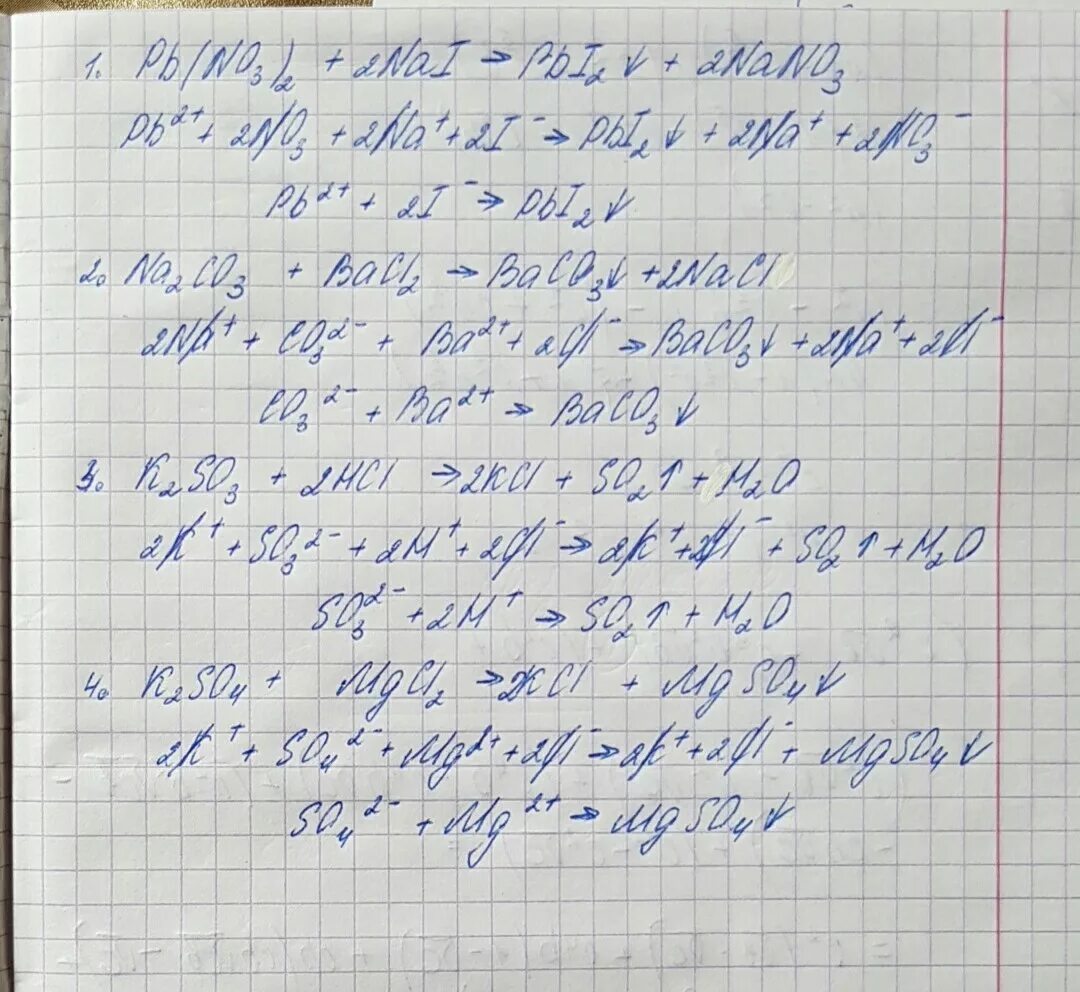 1. Pb(NO₃)₂ + 2NaI → PbI₂↓ + 2NaNO₃
Pb²⁺ + 2NO₃ + 2Na⁺ + 2I⁻ → PbI₂↓ + 2Na⁺ + 2NO₃⁻
Pb²⁺ + 2I⁻ → PbI₂↓
2. Na₂CO₃ + BaCl₂ → BaCO₃↓ + 2NaCl
2Na⁺ + CO₃²⁻ + Ba²⁺ + 2Cl⁻ → BaCO₃↓ + 2Na⁺ + 2Cl⁻
CO₃²⁻ + Ba²⁺ → BaCO₃↓
3. K₂SO₃ + 2HCl → 2KCl + SO₂↑ + H₂O
2K⁺ + SO₃²⁻ + 2H⁺ + 2Cl⁻ → 2K⁺ + 2Cl⁻ + SO₂↑ + H₂O
SO₃²⁻ + 2H⁺ → SO₂↑ + H₂O
4. K₂SO₄ + MgCl₂ → 2KCl + MgSO₄↓
2K⁺ + SO₄²⁻ + Mg²⁺ + 2Cl⁻ → 2K⁺ + 2Cl⁻ + MgSO₄↓
SO₄²⁻ + Mg²⁺ → MgSO₄↓